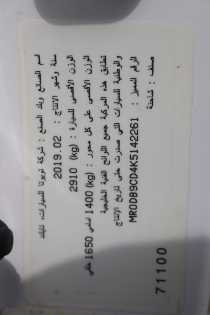 اسم الصانع وبلد الصنع : شركة تويوتا للسيارات، تايلاند
سنة وشهر الانتاج : 2019.02
الوزن الأقصى للسيارة : (kg) 2910
الوزن الأقصى على كل محور : (kg) 1400 أمامي 1650 خلفي
تطابق هذه المركبة جميع اللوائح الفنية الخليجية
والوطنية للسيارات التي صدرت حتى تاريخ الانتاج
الرقم المميز : MR0DB9CD4K5142261
صنف : شاحنة
71100